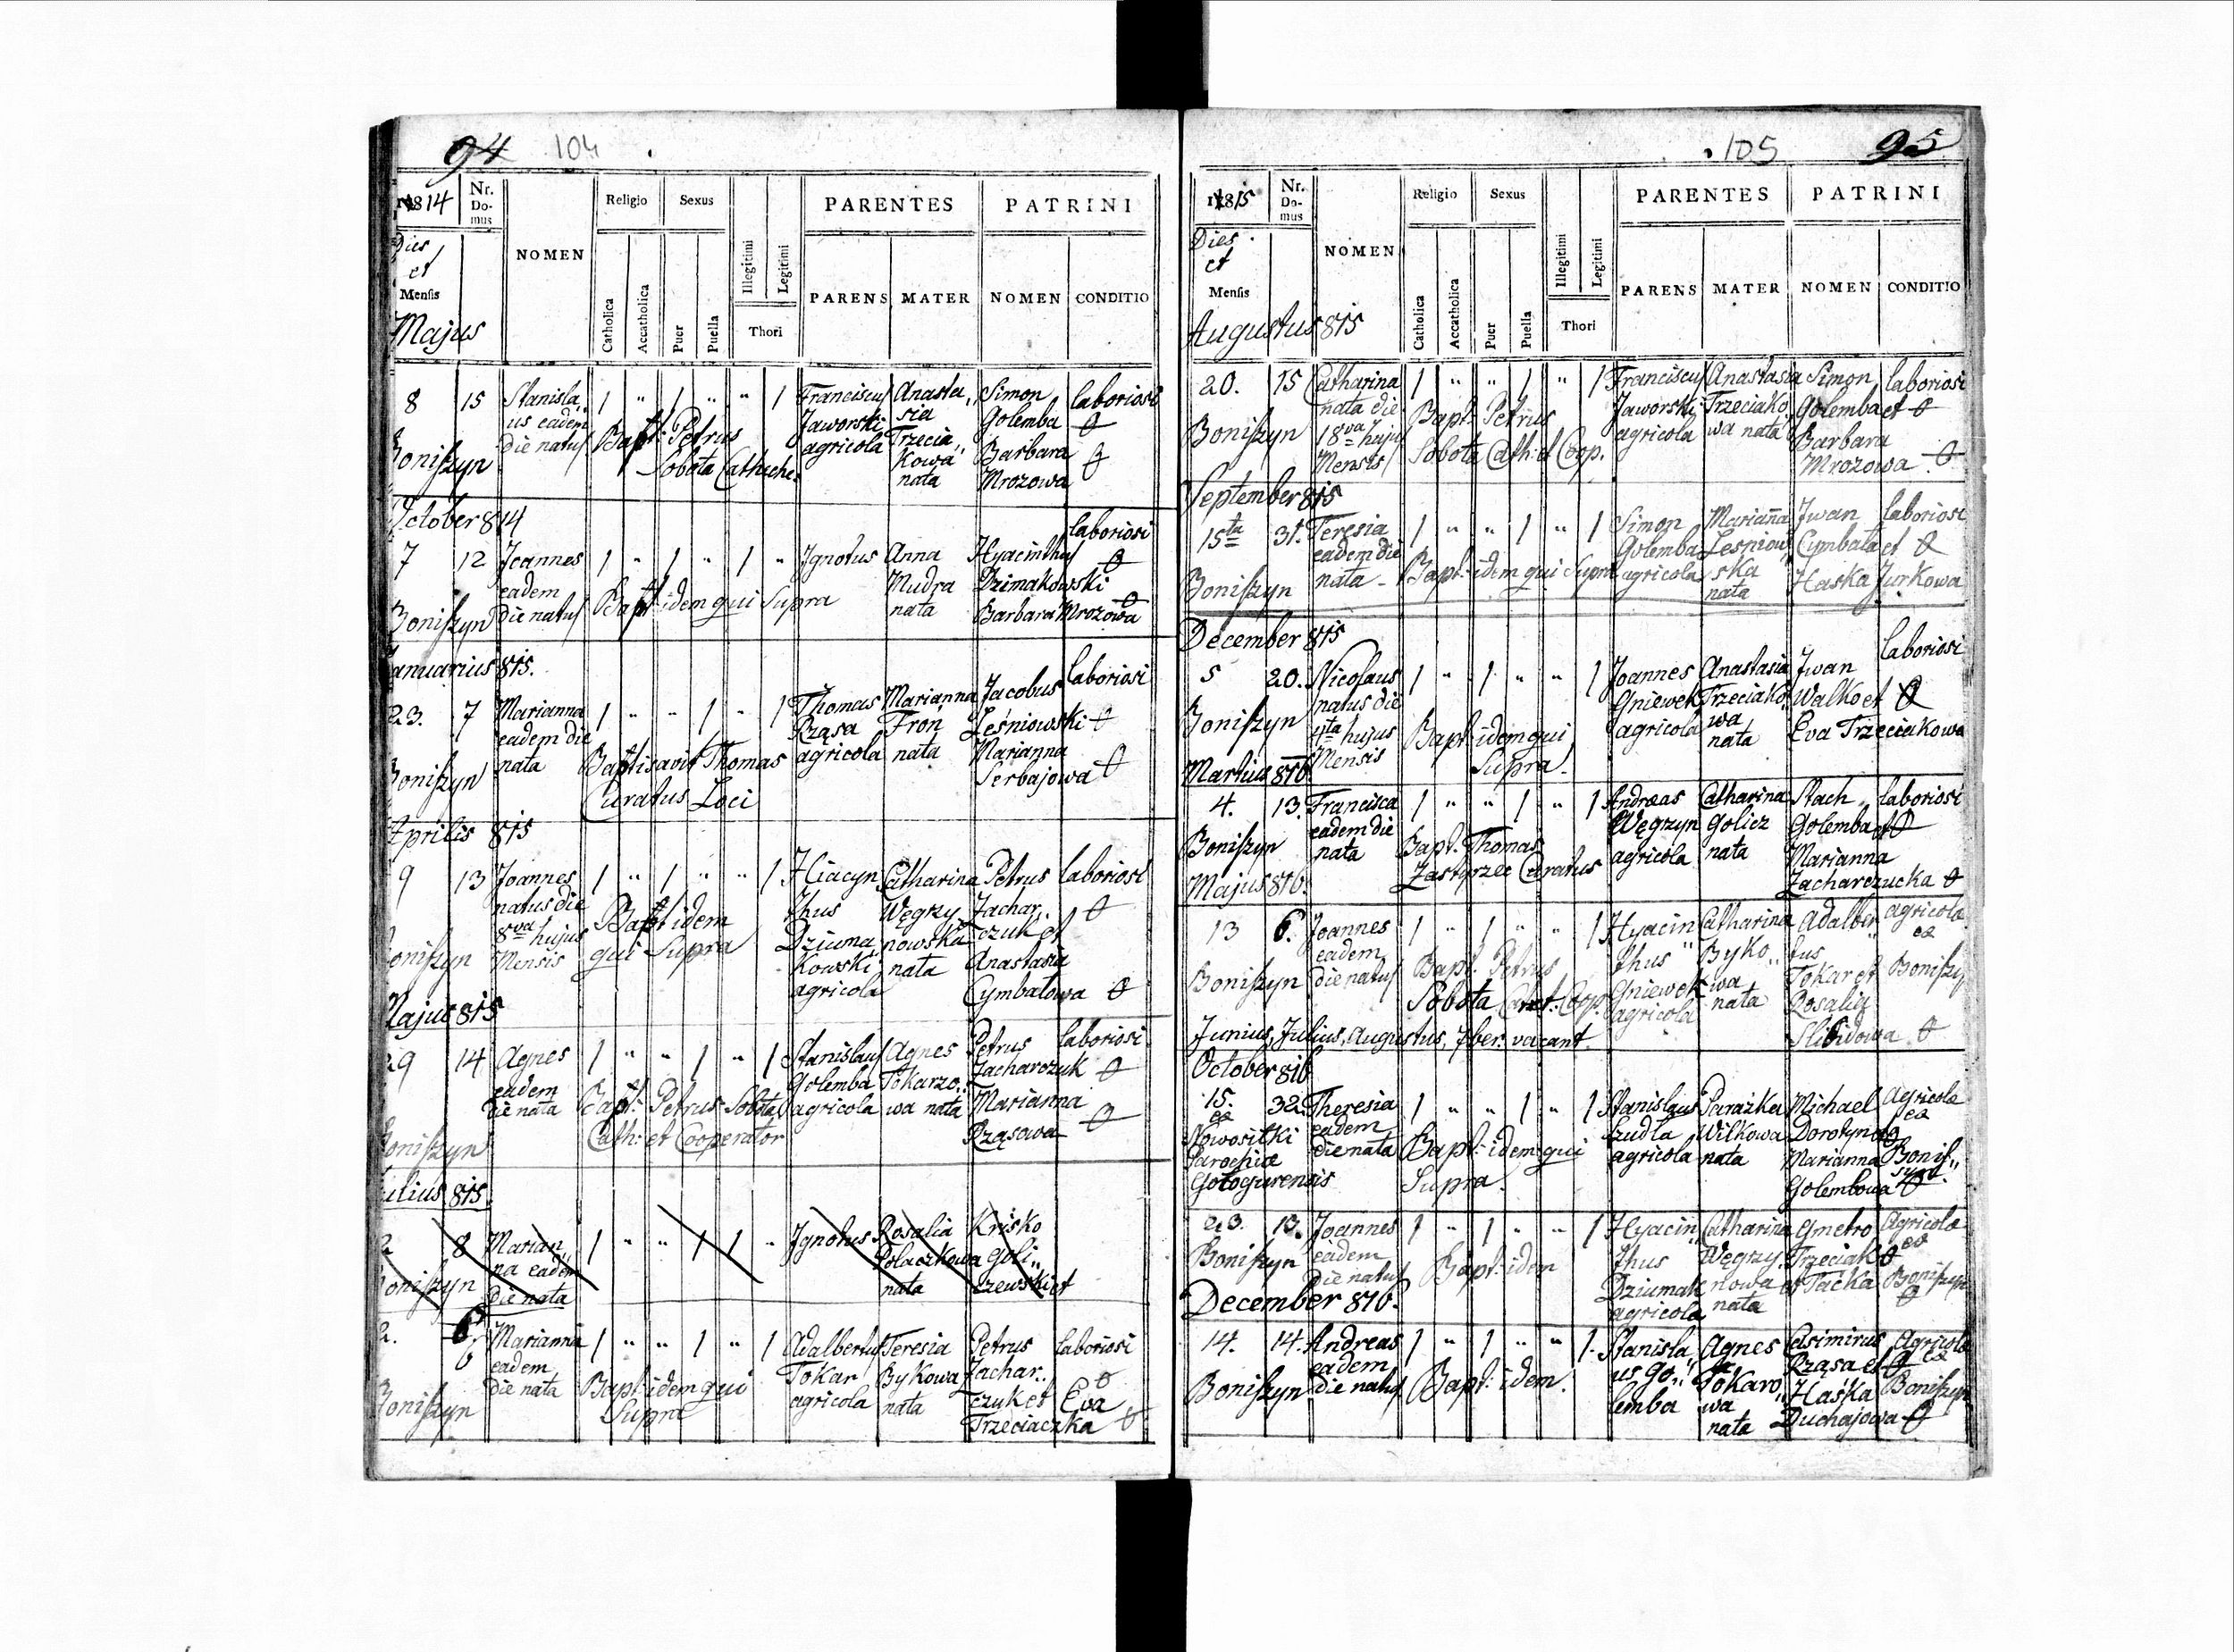 94 104
1814 Nr. Domus NOMEN Religio Sexus Illegitimi Legitimi PARENTES PATRINI
Dies et Mensis Catholica Accatholica Puer Puella Thori PARENS MATER NOMEN CONDITIO
Majus
8 15 Stanisla„ 1 " 1 " " 1 Franciscus Anasta„ Simon laboriosi
us eadem Jaworski sia Golemba
die natus Bapt: Petrus agricola Trzecia„ Barbara
Boniszyn Sobota Catheche. kowa nata Mrozowa
October 814
laboriosi
7 12 Joannes 1 " 1 " 1 " Ignotus Anna Hyacinthus
eadem Mudra Dzimakowski
Boniszyn die natus Bapt: idem qui Supra nata Barbara Mrozowa
Januarius 815.
23. 7 Marianna 1 " " 1 " 1 Thomas Marianna Jacobus laboriosi
eadem die Rząsa Fron Leśniowski
nata Baptisavit Thomas agricola nata Marianna
Boniszyn Curatus Loci Serbajowa
Aprilis 815
9 13 Joannes 1 " 1 " " 1 Hiacyn Catharina Petrus laboriosi
natus die thus Węgrzy Zachar„
8va hujus Bapt: idem Dziuma nowska czuk et
Boniszyn Mensis qui Supra kowski nata Anastasia
agricola Cymbałowa
Majus 815
29 14 Agnes 1 " " 1 " 1 Stanislaus Agnes Petrus laboriosi
eadem Golemba Tokarzo„ Zacharczuk
die nata Bapt: Petrus Sobota agricola wa nata Marianna
Boniszyn Cath: et Cooperator Rząsowa
Julius 815.
2 8 Marian„ 1 " " 1 1 " Ignotus Rosalia Krisko
na eadem Polaczkowa Goli„
Boniszyn die nata nata czewski et
2. 6. Marianna 1 " " 1 " 1 Adalbertus Teresia Petrus laboriosi
eadem Tokar Bykowa Zachar„
die nata Bapt: idem qui agricola nata czuk et Eva
Boniszyn Supra Trzeciaczka
105 95
1815 Nr. Domus NOMEN Religio Sexus Illegitimi Legitimi PARENTES PATRINI
Dies et Mensis Catholica Accatholica Puer Puella Thori PARENS MATER NOMEN CONDITIO
Augustus 815
20. 15 Catharina 1 " " 1 " 1 Franciscus Anastasia Simon laboriosi
nata die Bapt: Petrus Jaworski Trzeciako„ Golemba et
Boniszyn 18va hujus Sobota Cath: et Coop. agricola wa nata Barbara
Mensis Mrozowa
September 815
15ta 31. Teresia 1 " " 1 " 1 Simon Marianna Iwan laboriosi
eadem die Golemba Lesniow„ Cymbala et
Boniszyn nata - Bapt: idem qui Supra agricola ska nata Haska Jurkowa
December 815
laboriosi
5 20. Nicolaus 1 " 1 " " 1 Joannes Anastasia Iwan
natus die Gniewek Trzeciako„ Walko et
Boniszyn 4ta hujus Bapt: idem qui agricola wa nata Eva Trzeciakowa
Mensis Supra.
Martius 816.
4. 13. Francisca 1 " " 1 " 1 Andreas Catharina Stach laboriosi
eadem die Węgrzyn Golicz Golemba et
Boniszyn nata Bapt: Thomas agricola nata Marianna
Zastyrzec Curatus Zacharczucka
Majus 816.
13 6. Joannes 1 " 1 " " 1 Hyacin„ Catharina Adalber„ agricolae
eadem thus Byko„ tus ea
Boniszyn die natus Bapt: Petrus Gniewek wa Tokar et Boniszyn
Sobota Coop. agricola nata Rosalia
Junius, Julius, Augustus, 7ber: vacant.
October 816
15. 32. Theresia 1 " " 1 " 1 Stanislaus Paraźka Michael Agricolae
ex eadem Szudla Wilkowa Dorotyn et ex
Nowosilki die nata Bapt: idem qui agricola nata Marianna Bonis„
Parochiae Supra. Golembowa
Gołogurensis
23. 13. Joannes 1 " 1 " " 1 Hyacin„ Catharina Gmetro Agricolae
eadem thus Węgrzy„ Trzeciak ex
Boniszyn die natus Bapt: idem Dziumak nowa et Packa Boniszyn
agricola nata
December 816.
14. 14. Andreas 1 " 1 " " 1. Stanisla Agnes Casimirus Agricolae
eadem us Go„ Tokaro„ Rząsa et ex
Boniszyn die natus Bapt: idem. lemba wa Haśka Boniszyn
nata Duchajowa